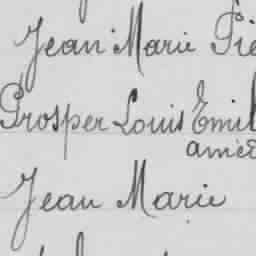 Jean Marie Pie
Prosper Louis Emil
amée
Jean Marie